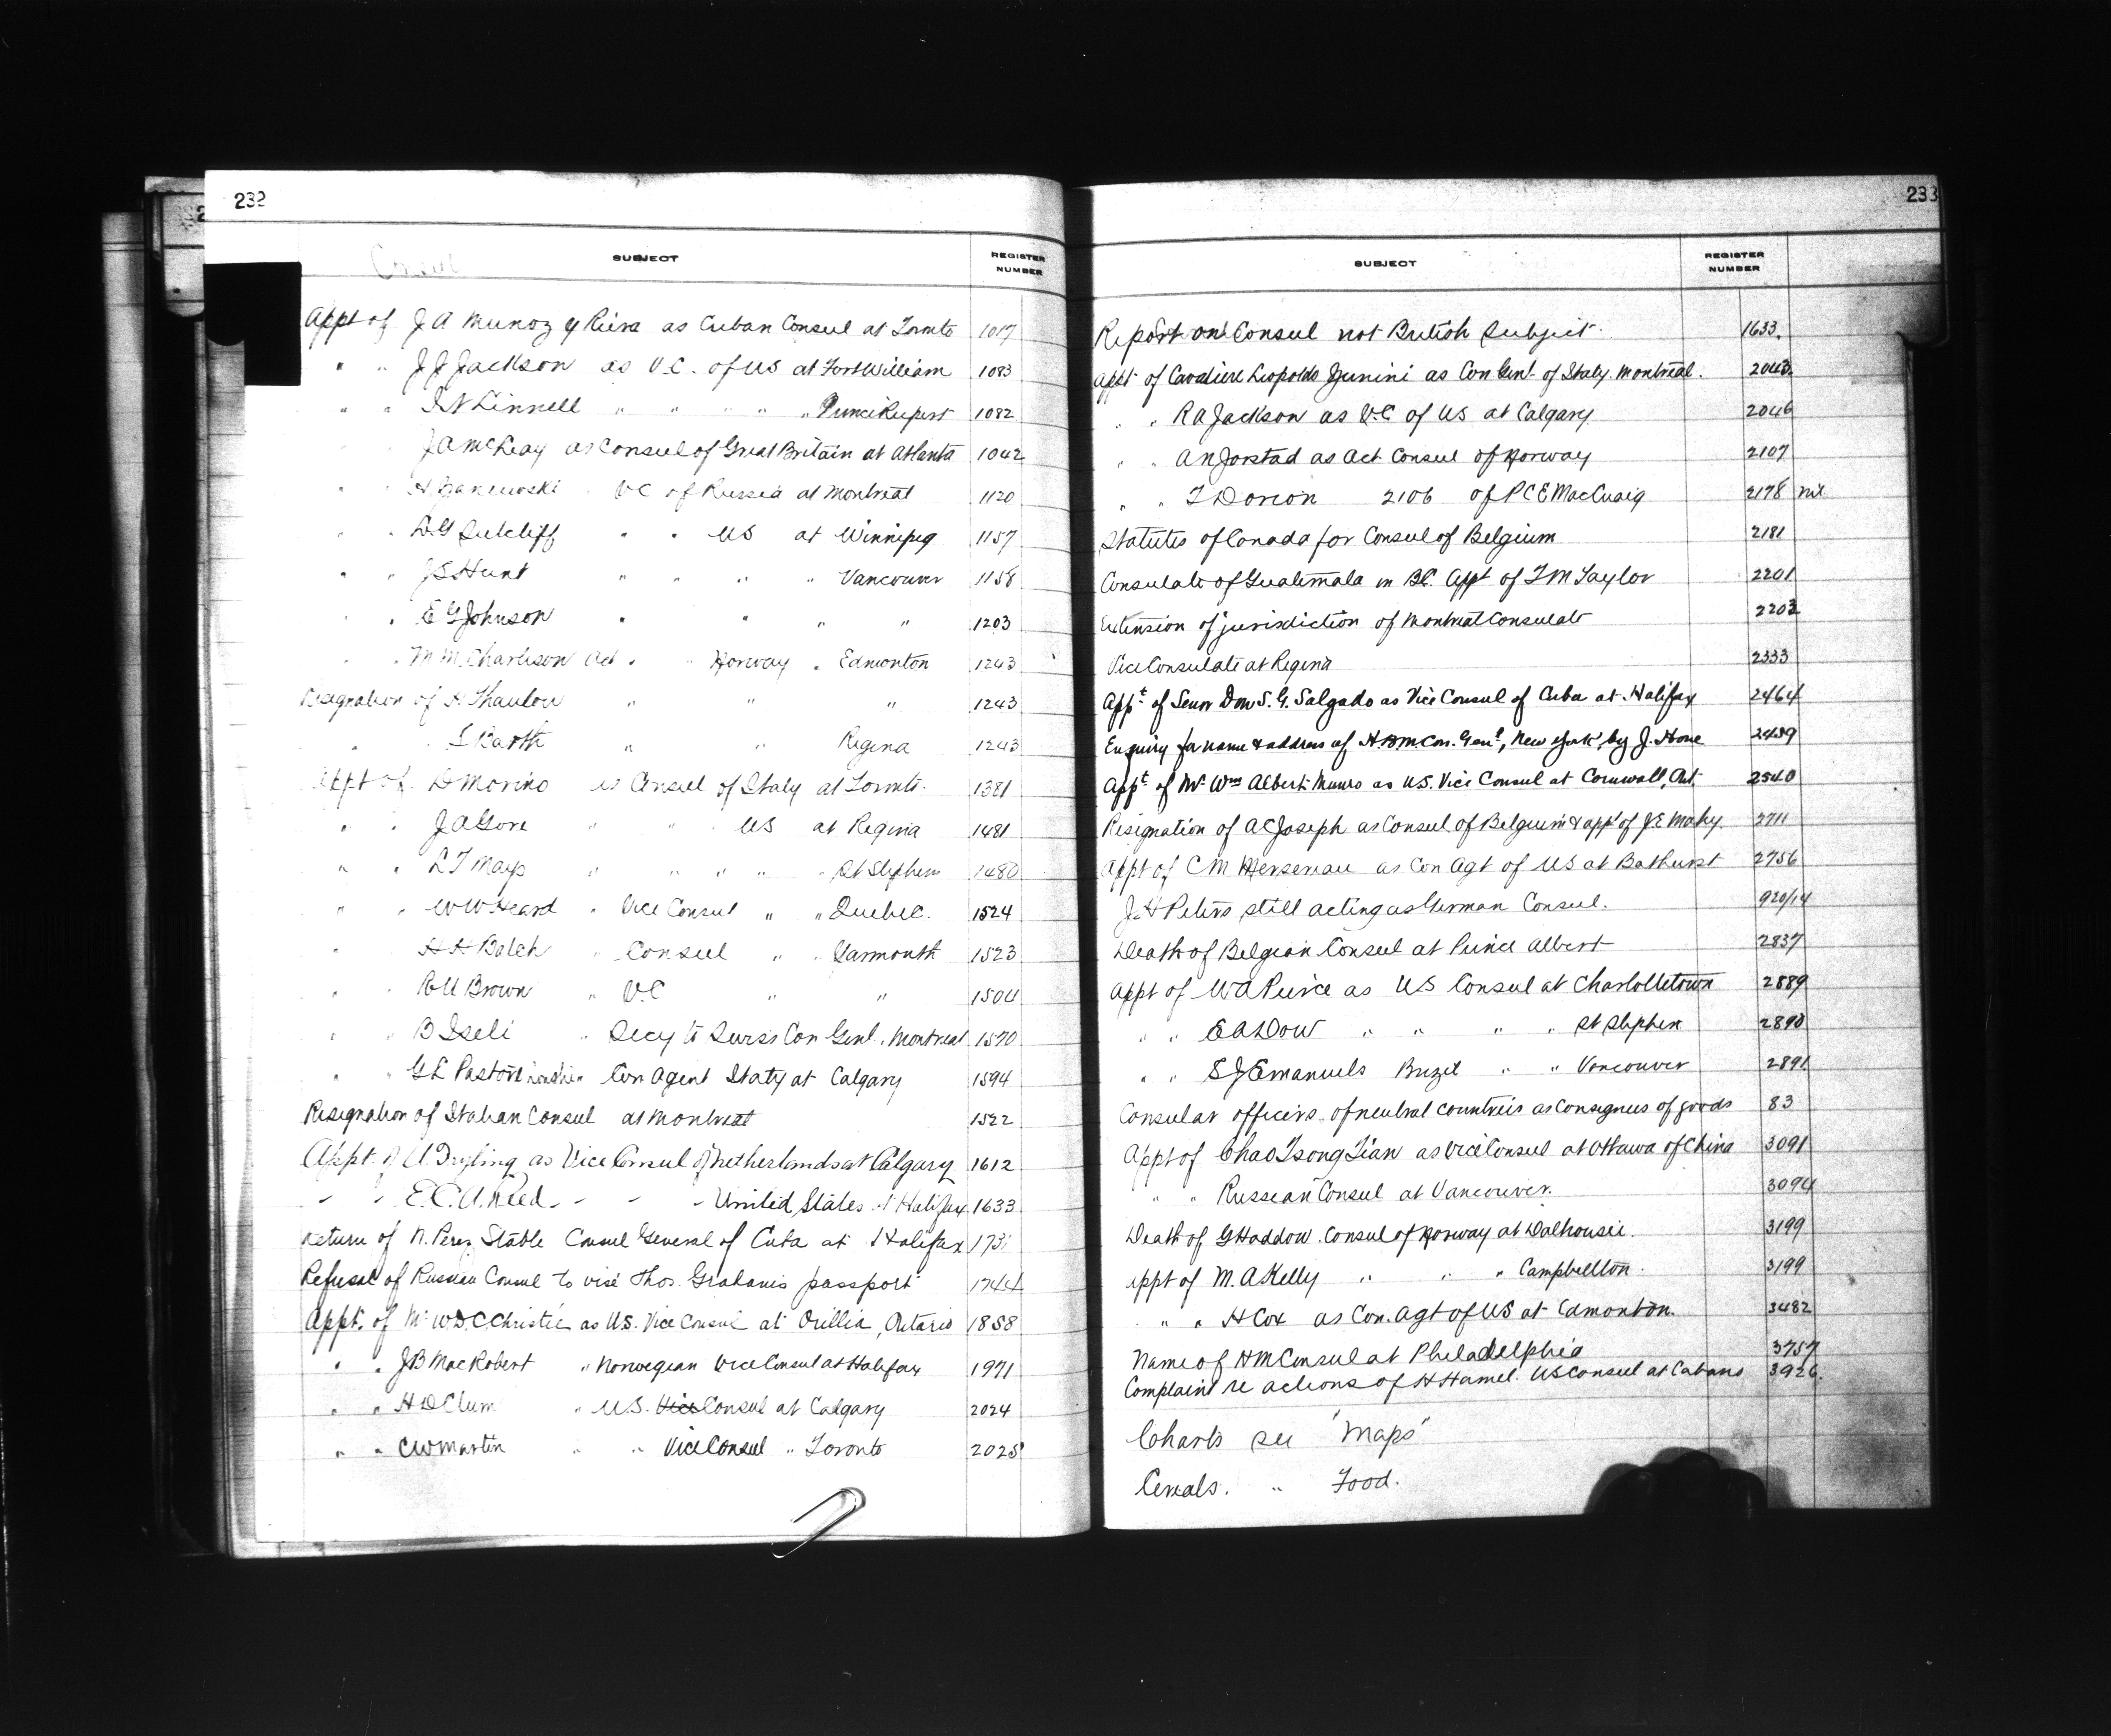 232
Consul
SUBJECT
REGISTER
NUMBER
Appt of J A Munoz y Riera as Cuban Consul at Tornto 1017
" " J J Jackson as V.C. of US at Fort William 1083
" " I N Linnell " " " " " Prince Rupert 1082
" " J A McLeay as Consul of Great Britain at Atlanta 1042
" " H " V C of Russia at Montreal 1120
" " D G Sutcliff " " US at Winnipeg 1157
" " J S Hunt " " " " Vancouver 1158
" " E G Johnson " " " " 1203
" " M M Charlison Act " " Norway " Edmonton 1243
Resignation of H Thaulow " " " 1243
" " S Barth " " Regina 1243
Appt of D Morino as Consul of Italy at Tornto. 1381
" " J A Gore " " US at Regina 1481
" " L T Mays " " " " " St Stephen 1480
" " W W Heard " Vice Consul " " Quebec. 1524
" " H A Balch " Consul " " Yarmouth 1523
" " R U Brown " V.C " " 1504
" " B Iseli " Secy to Swiss Con Genl. Montreal 1570
" " G L Pastori Con Agent Italy at Calgary 1594
Resignation of Italian Consul at Montreal 1522
Appt. of A. as Vice Consul of Netherlands at Calgary 1612
" " E. C. A. Reed - - - - United States at Halifax 1633
Return of N. Perez Stable Consul General of Cuba at Halifax 173
Refusal of Russian Consul to visé Thos. Grahams passport 1744
Appt. of Mr W D C Christie as U.S. Vice Consul at Orillia, Ontario 1858
" " J B MacRobert " Norwegian Vice Consul at Halifax 1971
" " H D Clum " U.S. Vice Consul at Calgary 2024
" " C W Martin " " Vice Consul " Toronto 2025
233
SUBJECT
REGISTER
NUMBER
Report on Consul not British Subject. 1633.
Appt of Cavaliere Leopoldo Zunini as Con Genl of Italy Montreal. 2043
" " R A Jackson as V.C of US at Calgary 2046
" " A N Jorstad as Act Consul of Norway 2107
" " T Dorion 2106 of P C E MacCuaig 2178 nil
Statutes of Canada for Consul of Belgium 2181
Consulate of Guatemala in BC. Appt of T M Taylor 2201
Extension of jurisdiction of Montreal Consulate 2203
Vice Consulate at Regina 2333
Appt of Senor Don S. G. Salgado as Vice Consul of Cuba at Halifax 2464
Enquiry for name & address of H B M Con. Genl, New York, by J. Hone 2489
Appt of Mr Wm Albert Munro as U.S. Vice Consul at Cornwall, Ont. 2540
Resignation of A C Joseph as Consul of Belgium & appt of J E Mahy. 2711
Appt of C M Mersereau as Con Agt of US at Bathurst 2756
J H Peters still acting as German Consul. 920/14
Death of Belgian Consul at Prince Albert 2837
Appt of W A Pierce as US Consul at Charlottetown 2889
" " E A Dow " " " " St Stephen 2890
" " S J Emanuels Brazil " " Vancouver 2891
Consular officers of neutral countries as consignees of goods 83
Appt of Chao Tsong Tian as Vice Consul at Ottawa of China 3091
" " Russian Consul at Vancouver. 3094
Death of G Haddow Consul of Norway at Dalhousie. 3199
Appt of M. A Kelly " " " Campbellton. 3199
" " H Cox as Con. Agt of US at Edmonton. 3482
Name of H M Consul at Philadelphia 3757
Complaint re actions of H Hamel. US Consul at Cabano 3926.
Charts see "Maps"
Cereals. " Food.